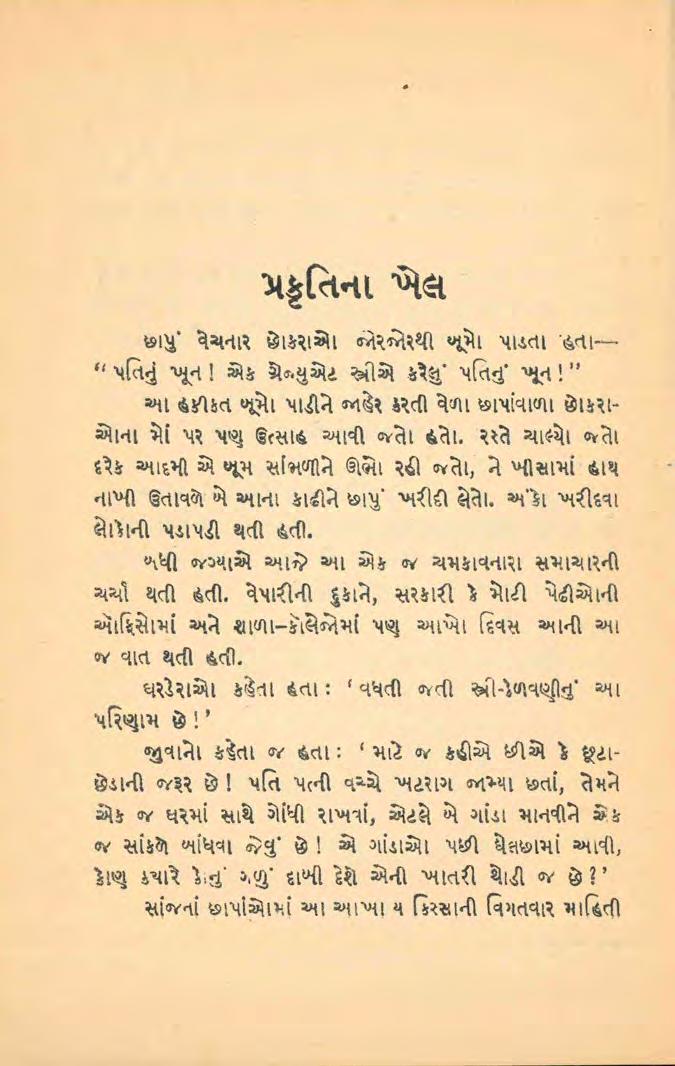 પ્રકૃતિના ખેલ
છાપું વેચનાર છોકરાઓ જોરજોરથી બૂમો પાડતા હતા—
“ પતિનું ખૂન ! એક ગ્રેજ્યુએટ સ્ત્રીએ કરેલું પતિનું ખૂન ! ”
આ હકીકત બૂમો પાડીને જાહેર કરતી વેળા છાપાંવાળા છોકરા-
ઓના મોં પર પણ ઉત્સાહ આવી જતો હતો. રસ્તે ચાલ્યો જતો
દરેક આદમી એ બૂમ સાંભળીને ઊભો રહી જતો, ને ખીસામાં હાથ
નાખી ઉતાવળે બે આના કાઢીને છાપું ખરીદી લેતો. અંકો ખરીદવા
લોકોની પડાપડી થતી હતી.
બધી જગ્યાએ આજે આ એક જ ચમકાવનારા સમાચારની
ચર્ચા થતી હતી. વેપારીની દુકાને, સરકારી કે મોટી પેઢીઓની
ઑફિસોમાં અને શાળા–કૉલેજોમાં પણ આખો દિવસ આની આ
જ વાત થતી હતી.
ઘરડેરાઓ કહેતા હતા : ‘ વધતી જતી સ્ત્રી-કેળવણીનું આ
પરિણામ છે ! ’
જુવાનો કહેતા જ હતા : ‘ માટે જ કહીએ છીએ કે છૂટા-
છેડાની જરૂર છે ! પતિ પત્ની વચ્ચે ખટરાગ જામ્યા છતાં, તેમને
એક જ ઘરમાં સાથે ગોંધી રાખવાં, એટલે બે ગાંડા માનવીને એક
જ સાંકળે બાંધવા જેવું છે ! એ ગાંડાઓ પછી ઘેલછામાં આવી,
કોણ ક્યારે કોનું ગળું દાબી દેશે એની ખાતરી થોડી જ છે ? ’
સાંજનાં છાપાંઓમાં આ આખા ય કિસ્સાની વિગતવાર માહિતી